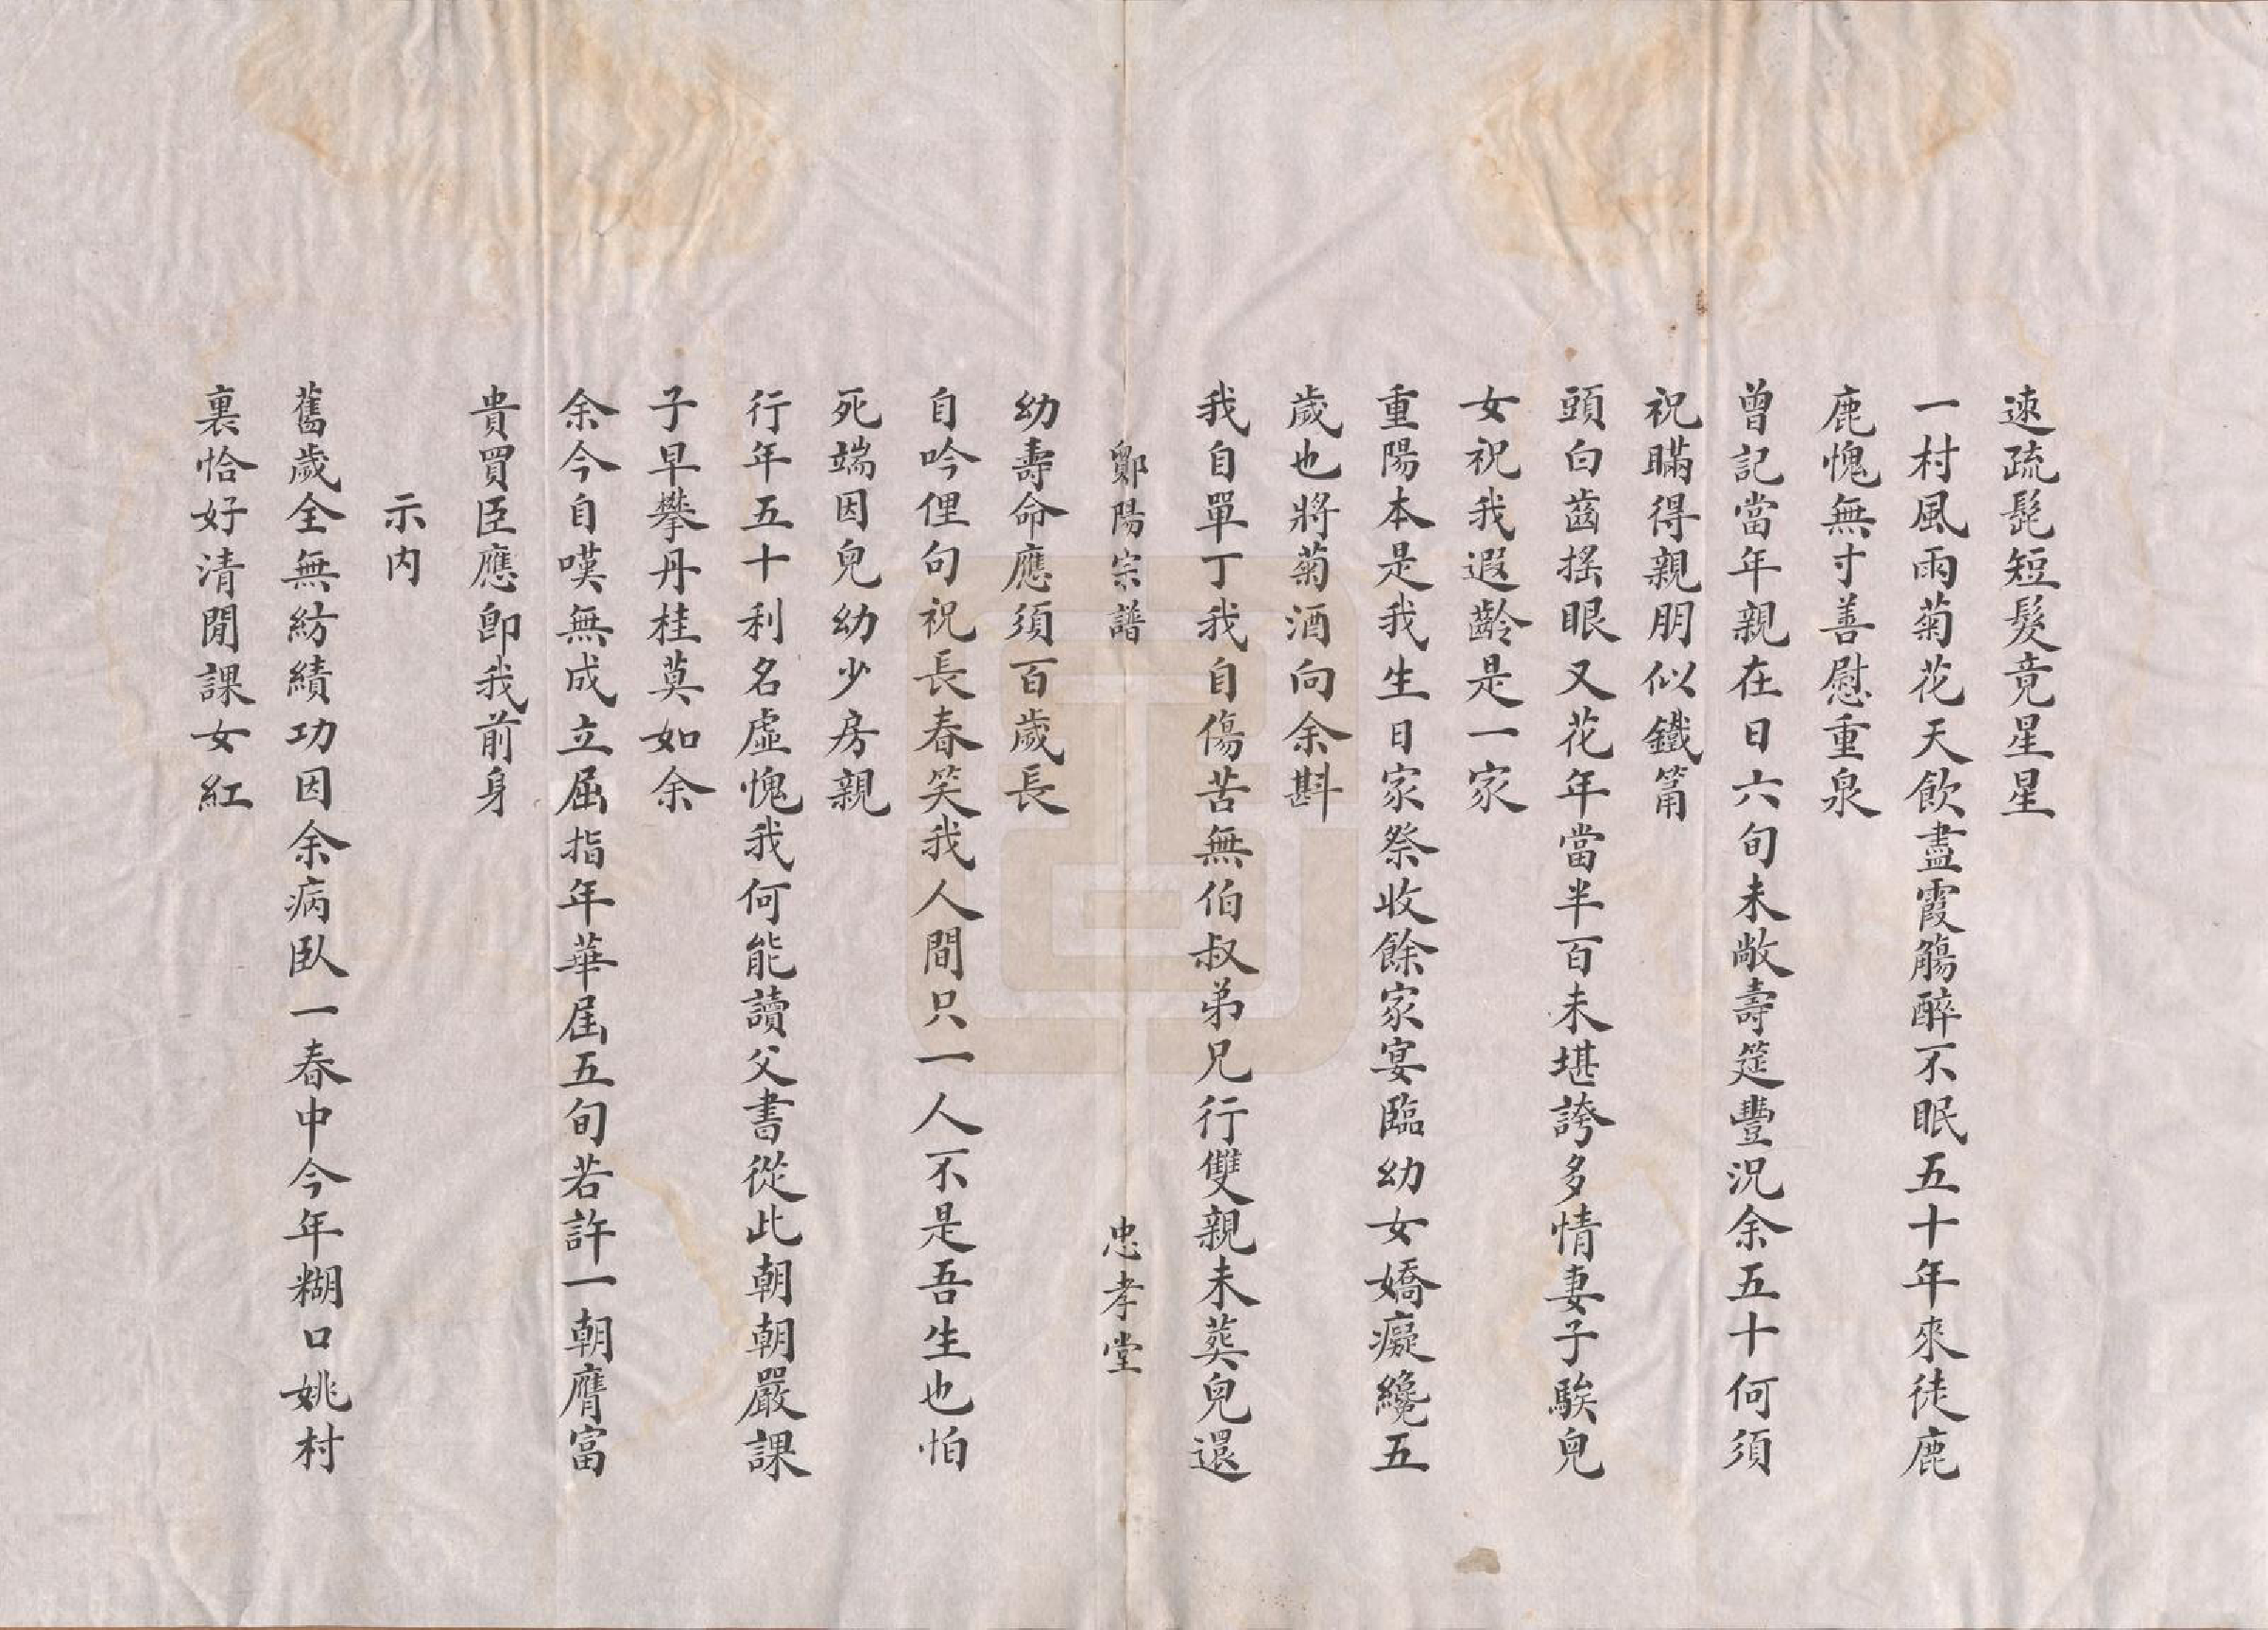 速疏髭短髮竟星星
一村風雨菊花天飲盡霞觴醉不眠五十年來徒鹿
鹿愧無寸善慰重泉
曾記當年親在日六旬未敞壽筵豐況余五十何須
祝瞞得親朋似鐵筩
頭白齒搖眼又花年當半百未堪誇多情妻子騃兒
女祝我遐齡是一家
重陽本是我生日家祭收餘家宴臨幼女嬌癡纔五
歲也將菊酒向余斟
我自單丁我自傷苦無伯叔弟兄行雙親未葬兒還
鄭陽宗譜 忠孝堂
幼壽命應須百歲長
自吟俚句祝長春笑我人間只一人不是吾生也怕
死端因兒幼少房親
行年五十利名虛愧我何能讀父書從此朝朝嚴課
子早攀丹桂莫如余
余今自嘆無成立屈指年華屆五旬若許一朝膺富
貴買臣應卽我前身
示內
舊歲全無紡績功因余病臥一春中今年糊口姚村
裏恰好清閒課女紅